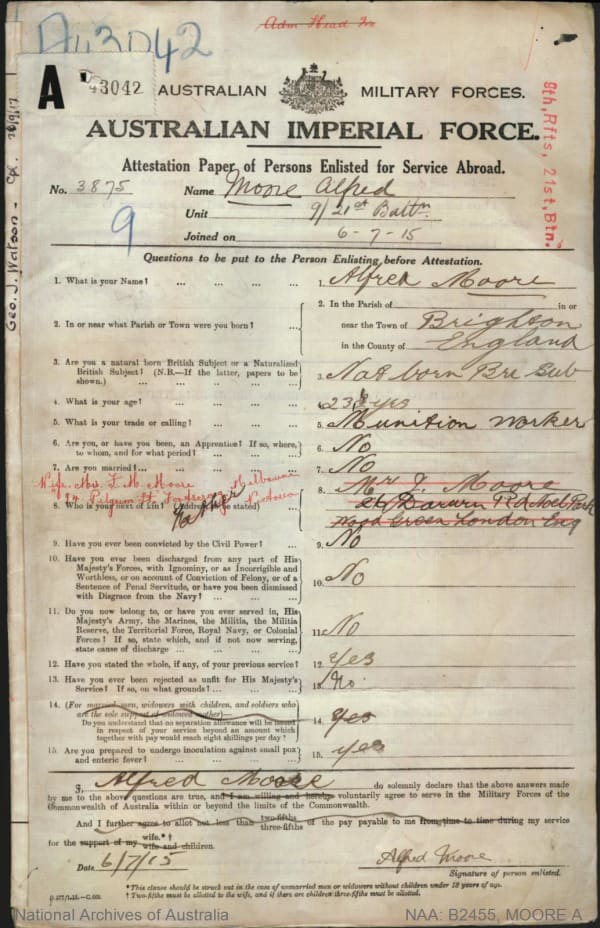 Adm Head Qr
A43042
A 43042 AUSTRALIAN MILITARY FORCES.
AUSTRALIAN IMPERIAL FORCE.
8th, Rfts, 21st, Btn.
Geo. J. Watson - Cpl. 26/9/17
Attestation Paper of Persons Enlisted for Service Abroad.
No. 3875 Name Moore Alfred
Unit 9/21st Battn
9
Joined on 6-7-15
Questions to be put to the Person Enlisting before Attestation.
1. What is your Name? ... ... ... ... 1. Alfred Moore
2. In or near what Parish or Town were you born? ...
2. In the Parish of in or
near the Town of Brighton
in the County of England
3. Are you a natural born British Subject or a Naturalized
British Subject? (N.B.—If the latter, papers to be
shown.) ... ... ... ... 3. Nat born Bri Sub
4. What is your age? ... ... ... ... 4. 23 yrs
5. What is your trade or calling? ... ... ... 5. Munition worker
6. Are you, or have you been, an Apprentice? If so, where,
to whom, and for what period? ... ... ... 6. No
7. Are you married? ... ... ... ... 7. No
Wife. Mrs. L. M. Moore
94 Pilgrim St. Footscray Melbourne
Victoria
8. Who is your next of kin? (Address to be stated)
Father
8. Mr J. Moore
26 Darwin Rd Noel Park
Wood Green London Eng
9. Have you ever been convicted by the Civil Power? ... 9. No
10. Have you ever been discharged from any part of His
Majesty's Forces, with Ignominy, or as Incorrigible and
Worthless, or on account of Conviction of Felony, or of a
Sentence of Penal Servitude, or have you been dismissed
with Disgrace from the Navy? ... ... 10. No
11. Do you now belong to, or have you ever served in, His
Majesty's Army, the Marines, the Militia, the Militia
Reserve, the Territorial Force, Royal Navy, or Colonial
Forces? If so, state which, and if not now serving,
state cause of discharge ... ... ... 11. No
12. Have you stated the whole, if any, of your previous service? 12. Yes
13. Have you ever been rejected as unfit for His Majesty's
Service? If so, on what grounds? ... ... 13. No.
14. (For married men, widowers with children, and soldiers who
are the sole support of widowed mother)—
Do you understand that no separation allowance will be issued
in respect of your service beyond an amount which
together with pay would reach eight shillings per day? ... 14. Yes
15. Are you prepared to undergo inoculation against small pox
and enteric fever? ... ... ... ... 15. Yes
I, Alfred Moore do solemnly declare that the above answers made
by me to the above questions are true, and I am willing and hereby voluntarily agree to serve in the Military Forces of the
Commonwealth of Australia within or beyond the limits of the Commonwealth.
And I further agree to allot not less than two-fifths three-fifths of the pay payable to me from time to time during my service
for the support of my wife.*† wife and children.
Date 6/7/15
Alfred Moore
Signature of person enlisted.
*This clause should be struck out in the case of unmarried men or widowers without children under 18 years of age.
† Two-fifths must be allotted to the wife, and if there are children three-fifths must be allotted.
National Archives of Australia NAA: B2455, MOORE A